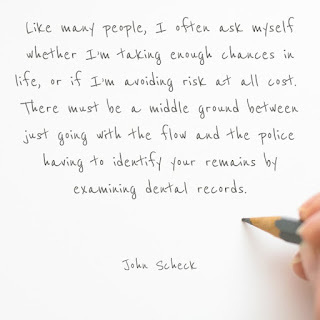 Like many people, I often ask myself
whether I'm taking enough chances in
life, or if I'm avoiding risk at all cost.
There must be a middle ground between
just going with the flow and the police
having to identify your remains by
examining dental records.
John Scheck